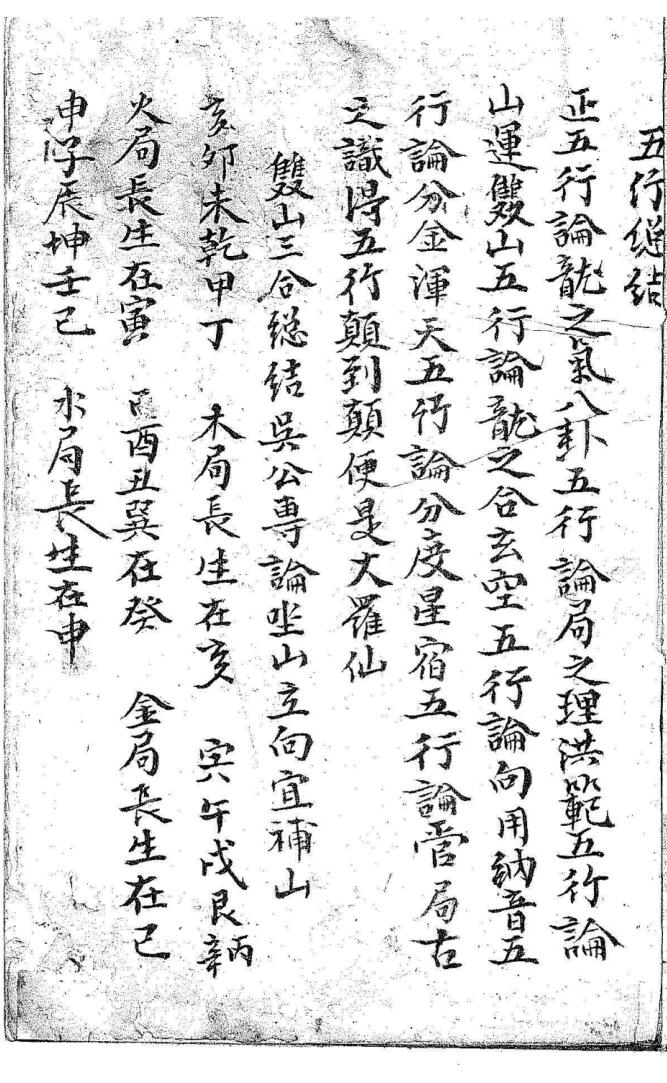 五行總結
正五行論龍之氣八卦五行論局之理洪範五行論
山運雙山五行論龍之合玄空五行論向用納音五
行論分金渾天五行論分度星宿五行論管局古
之識得五行顛到顛便是大羅仙
雙山三合總結吳公專論坐山立向宜補山
亥卯未乾甲丁　木局長生在亥　寅午戌艮丙辛
火局長生在寅　巳酉丑巽在癸　金局長生在巳
申子辰坤壬乙　水局長生在申